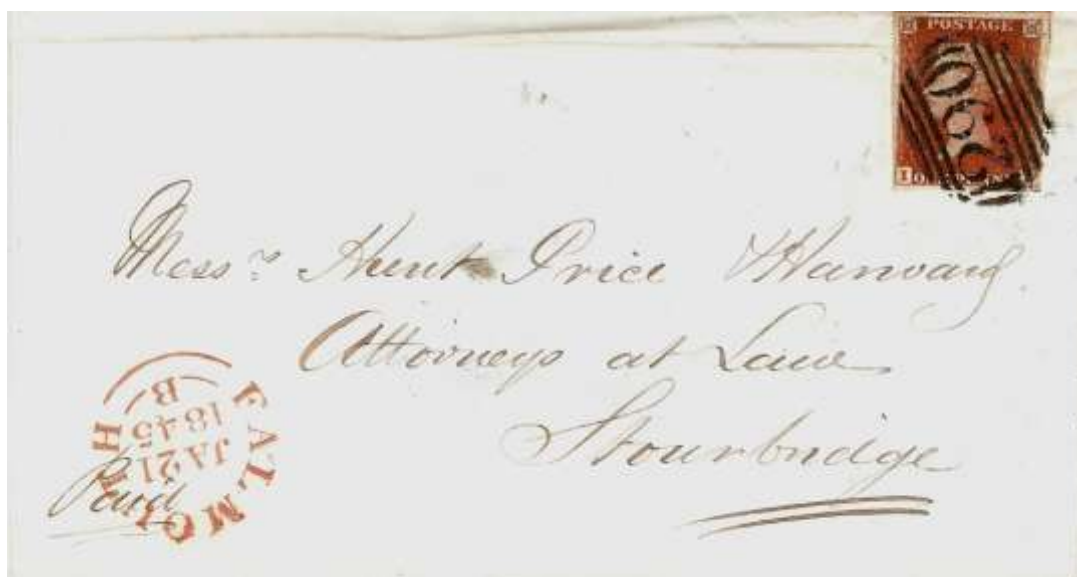 POSTAGE
Mess.rs Hunt Price & Harward
Attorneys at Law
Stourbridge
Paid
FALMOUTH
B
1845
JA 21